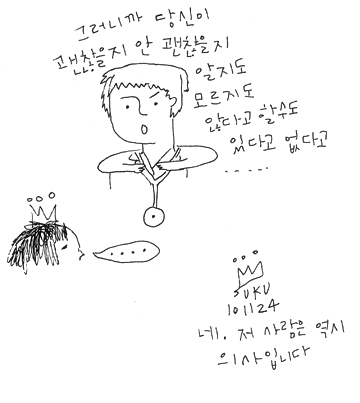 그러니까 당신이
괜찮을지 안 괜찮을지
알지도
모르지도
않다고 할수도
있다고 없다고
.....
....
SUKU
101124
네. 저 사람은 역시
의사입니다